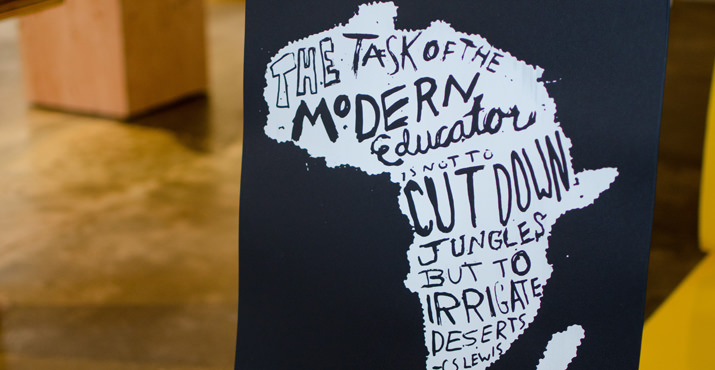 THE TASK OF THE
MODERN
Educator
IS NOT TO
CUT DOWN
JUNGLES
BUT TO
IRRIGATE
DESERTS
-CS LEWIS